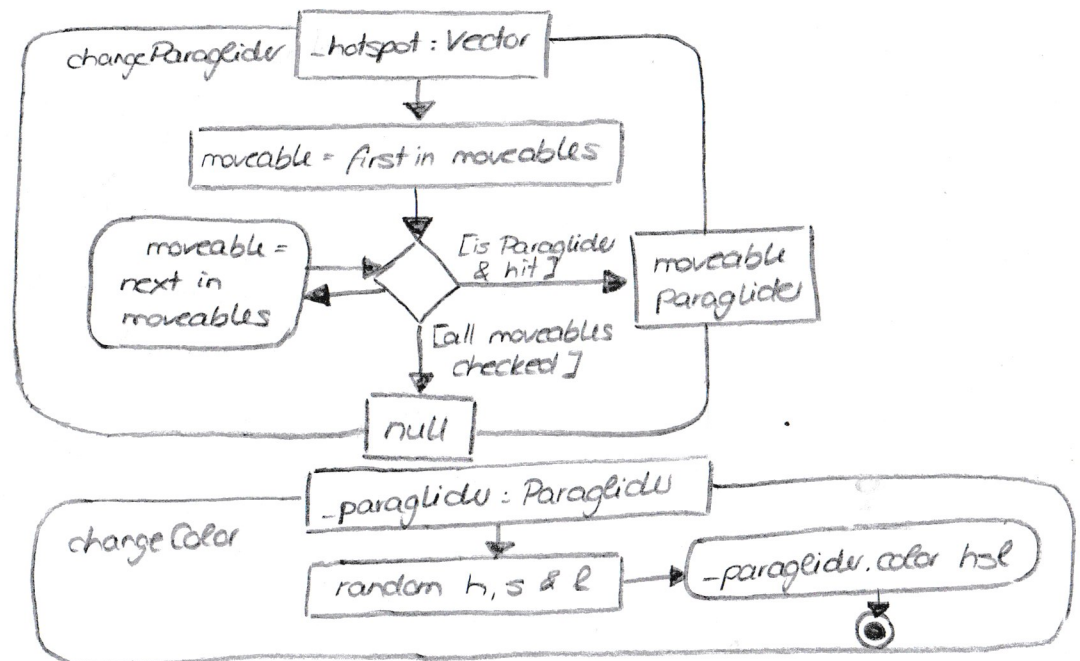 changeParaglider
_hotspot : Vector
moveable = first in moveables
moveable =
next in
moveables
[is Paraglider
& hit]
moveable
paraglider
[all moveables
checked]
null
_paraglider : Paraglider
changeColor
random h, s & l
_paraglider.color hsl